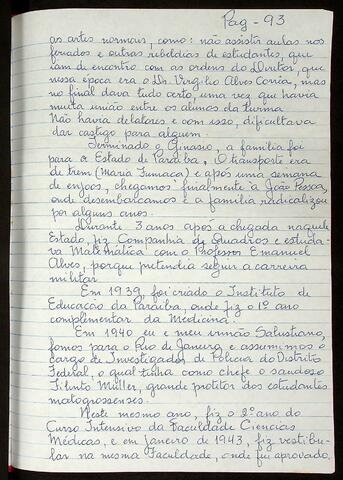 Pag - 93
as artes normais, como: não assistir aulas nos
feriados e outras rebeldias de estudantes, que
iam de encontro com as ordens do Diretor, que
nessa época era o Dr. Virgílio Alves Corrêa, mas
no final dava tudo certo, uma vez que havia
muita união entre os alunos da turma.
Não havia delatores e com isso, dificultava
dar castigo para alguem.
Terminado o Ginasio, a família foi
para o Estado de Paraíba. O transporte era
de trem (Maria Fumaça) e após uma semana
de enjoos, chegamos finalmente a João Pessoa,
onde desembarcamos e a família radicalizou
por alguns anos.
Durante 3 anos após a chegada naquele
Estado, fiz Companhia de Quadros e estuda-
va Matemática com o Professor Emanuel
Alves, porque pretendia seguir a carreira
militar.
Em 1939, foi criado o Instituto de
Educação da Paraíba, onde fiz o 1º ano
complementar da Medicina.
Em 1940 eu e meu irmão Salustiano,
fomos para o Rio de Janeiro e assumimos o
cargo de Investigador de Policia do Distrito
Federal, o qual tinha como chefe o saudoso
Filinto Müller, grande protetor dos estudantes
matogrossenses.
Neste mesmo ano, fiz o 2º ano do
Curso Intensivo da Faculdade Ciencias
Médicas, e em janeiro de 1943, fiz vestibu-
lar na mesma Faculdade, onde fui aprovado.